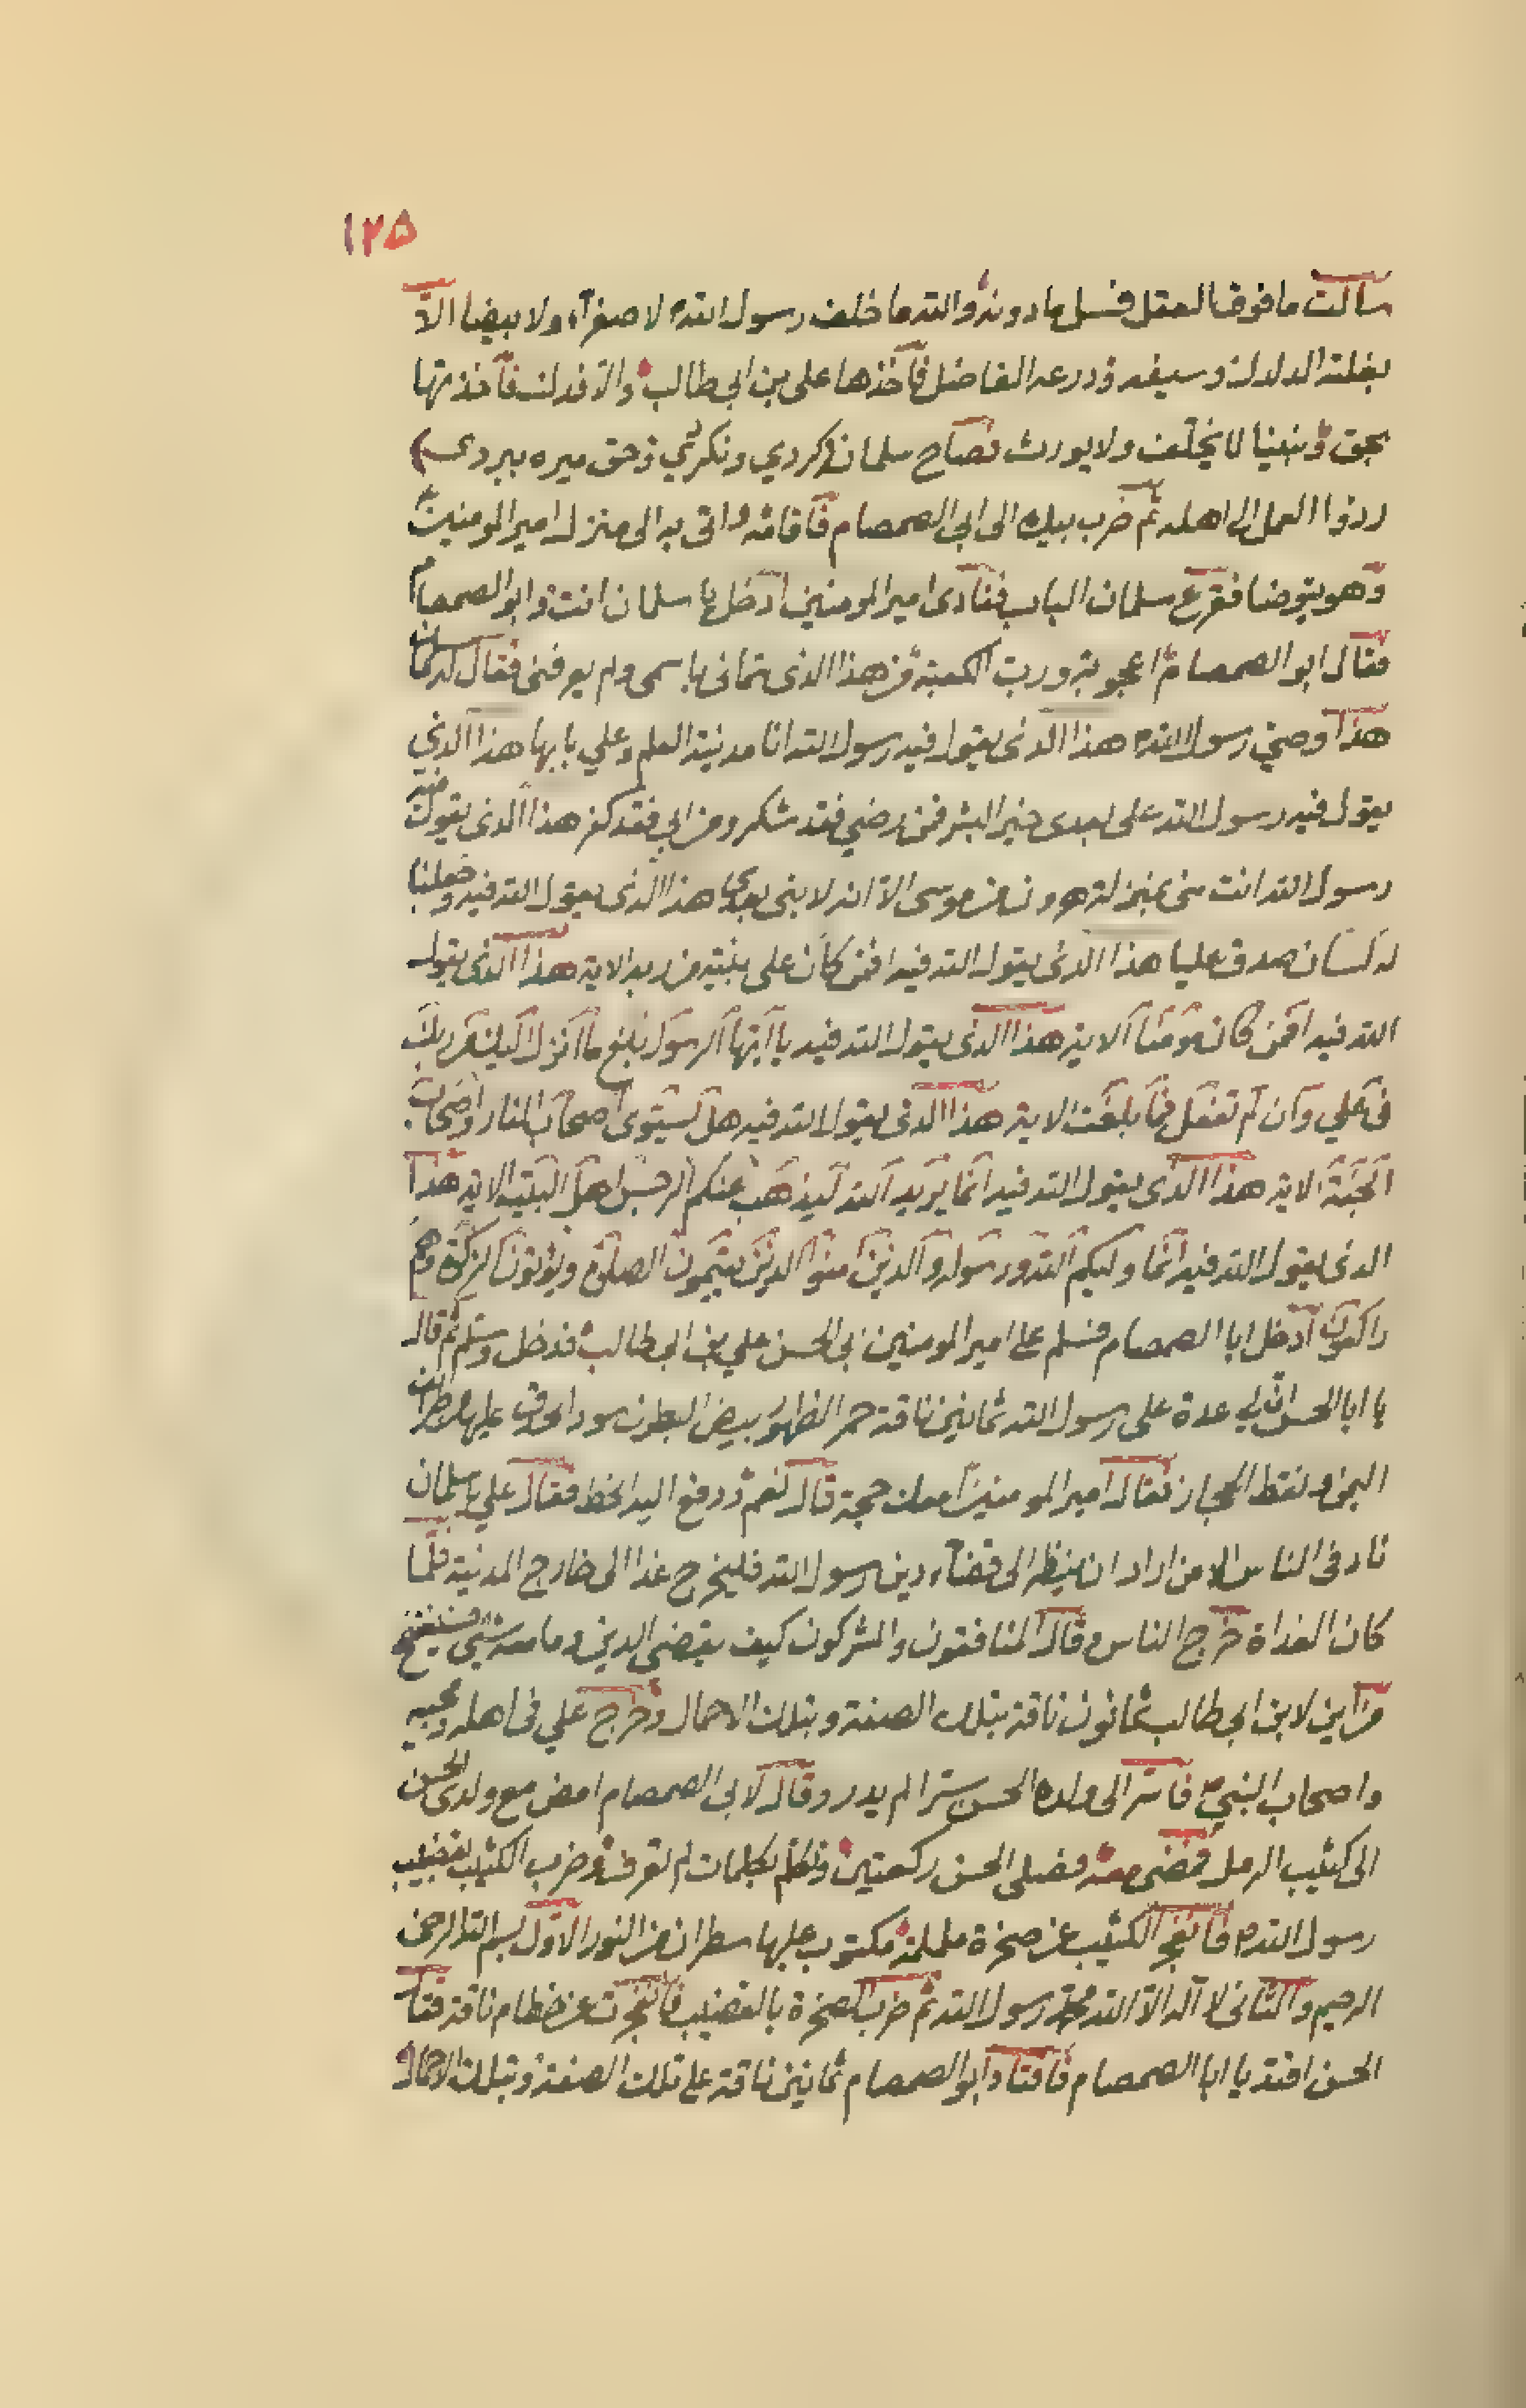 ١٢٥
سالت ما فوق العقل فسل ما دونه والله ما خلف رسول الله لا صفرآء ولا بيضا الا
بغلته الدلدل وسيفه ودرعه الفاضل فاخذها علي بن ابي طالب والا فدك فاخذتها
بحق ونبينا لا يخلف ولا يورث فصاح سلمان كردي ونكردي وحق ميره ببردي
ردوا العمل الى اهله ثم ضرب بيده الى ابي الصمصام فاقامه واتى به الى منزل امير المومنين
وهو يتوضا فقرع سلمان الباب فنادى امير المومنين ادخل يا سلمان انت وابو الصمصام
فقال ابو الصمصام اعجوبة ورب الكعبة من هذا الذى سمانى باسمى ولم يعرفنى فقال له سلمان
هذا وصي رسول الله هذا الذى يقول فيه رسول الله انا مدينة العلم وعلي بابها هذا الذى
يقول فيه رسول الله على بعدى خير البشر فمن رضي فقد شكر ومن ابي فقد كفر هذا الذى يقول فيه
رسول الله انت منى بمنزلة هرون من موسى الا انه لا بنى بعدى هذا الذى يقول الله فيه وجعلنا
له لسان صدق عليا هذا الذى يقول الله فيه افمن كان على بينة من ربه الاية هذا الذى يقول
الله فيه افمن كان مومنا الاية هذا الذى يقول الله فيه يا ايها الرسول بلغ ما انزل اليك من ربك
فى علي وان لم تفعل فما بلغت الاية هذا الذى يقول الله فيه هل يستوى اصحاب النار واصحاب
الجنة الاية هذا الذى يقول الله فيه انما يريد الله ليذهب عنكم الرجس اهل البيت الاية هذا
الذى يقول الله فيه انما وليكم الله ورسوله والذين امنوا الذين يقيمون الصلوة ويؤتون الزكوة وهم
راكعون ادخل ابا الصمصام فسلم على امير المومنين ابى الحسن علي بن ابى طالب فدخل وسلم ثم قال
يا ابا الحسن ان لي عدة على رسول الله ثمانين ناقة حمر الظهور بيض البطون سود الحدق عليها من طرائف
اليمن ونقط الحجاز فقال امير المومنين امعك حجة قال نعم ودفع اليه الخط فقال علي يا سلمان
ناد فى الناس الا من اراد ان ينظر الى قضآء دين رسول الله فليخرج غدا الى خارج المدينة فلما
كان الغداة خرج الناس وقال المنافقون والمشركون كيف يقضى الدين وما معه شيء
من اين لابن ابى طالب ثمانون ناقة بتلك الصفة وبتلك الاحمال وخرج علي فى اهله ومحبيه
واصحاب النبي فاسر الى ولده الحسن سترا لم يدر وقال لابى الصمصام امض مع ولدى الحسن
الى كثيب الرمل فمضى معه فصلى الحسن ركعتين وتكلم بكلمات لم تعرف وضرب الكثيب بقضيب
رسول الله فانفجر الكثيب عن صخرة ململمة مكتوب عليها سطران من النور الاول بسم الله الرحمن
الرحيم والثانى لا اله الا الله محمد رسول الله ثم ضرب الصخرة بالقضيب فانفجرت عن خطام ناقة فقال
الحسن اقتد يا ابا الصمصام فاقتاد ابو الصمصام ثمانين ناقة على تلك الصفة وبتلك الاحمال